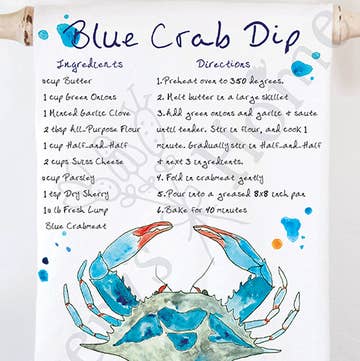 Blue Crab Dip
Ingredients
½cup Butter
1 cup Green Onions
1 Minced Garlic Clove
2 tbsp All-Purpose Flour
1 cup Half-and-Half
2 cups Swiss Cheese
Parsley
1 tsp Dry Sherry
lb Fresh Lump
Blue Crabmeat
Directions
1.Preheat oven to 350 degrees.
2. Melt butter in a large skillet
3.Add green onions and garlic & saute
until tender. Stir in flour, and cook 1
minute. Gradually stir in Half-and-Half
& next 3 ingredients.
4. Fold in crabmeat gently
5.Pour into a greased 8x8 inch pan
6.Bake for 40 minutes